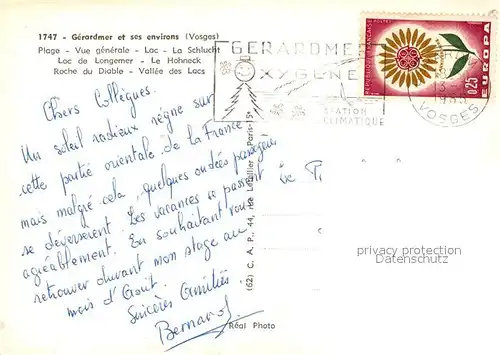 1747 - Gérardmer et ses environs (Vosges)
Plage - Vue générale - Lac - La Schlucht
Lac de Longemer - Le Hohneck
Roche du Diable - Vallée des Lacs
GÉRARDMER
OXYGÈNE
STATION
CLIMATIQUE
RÉPUBLIQUE FRANÇAISE
POSTES
EUROPA
0,25
VOSGES
Chers Collègues.
Un soleil radieux règne sur
cette partie orientale de la France
mais malgré cela quelques ondées passagères
se déversèrent. Les vacances se passent
agréablement. En souhaitant vous
retrouver durant mon stage au
mois d'Août.
Sincères Amitiés.
Bernard.
(62) C. A. P., 44, Paris-15e
Réal Photo
privacy protection
Datenschutz